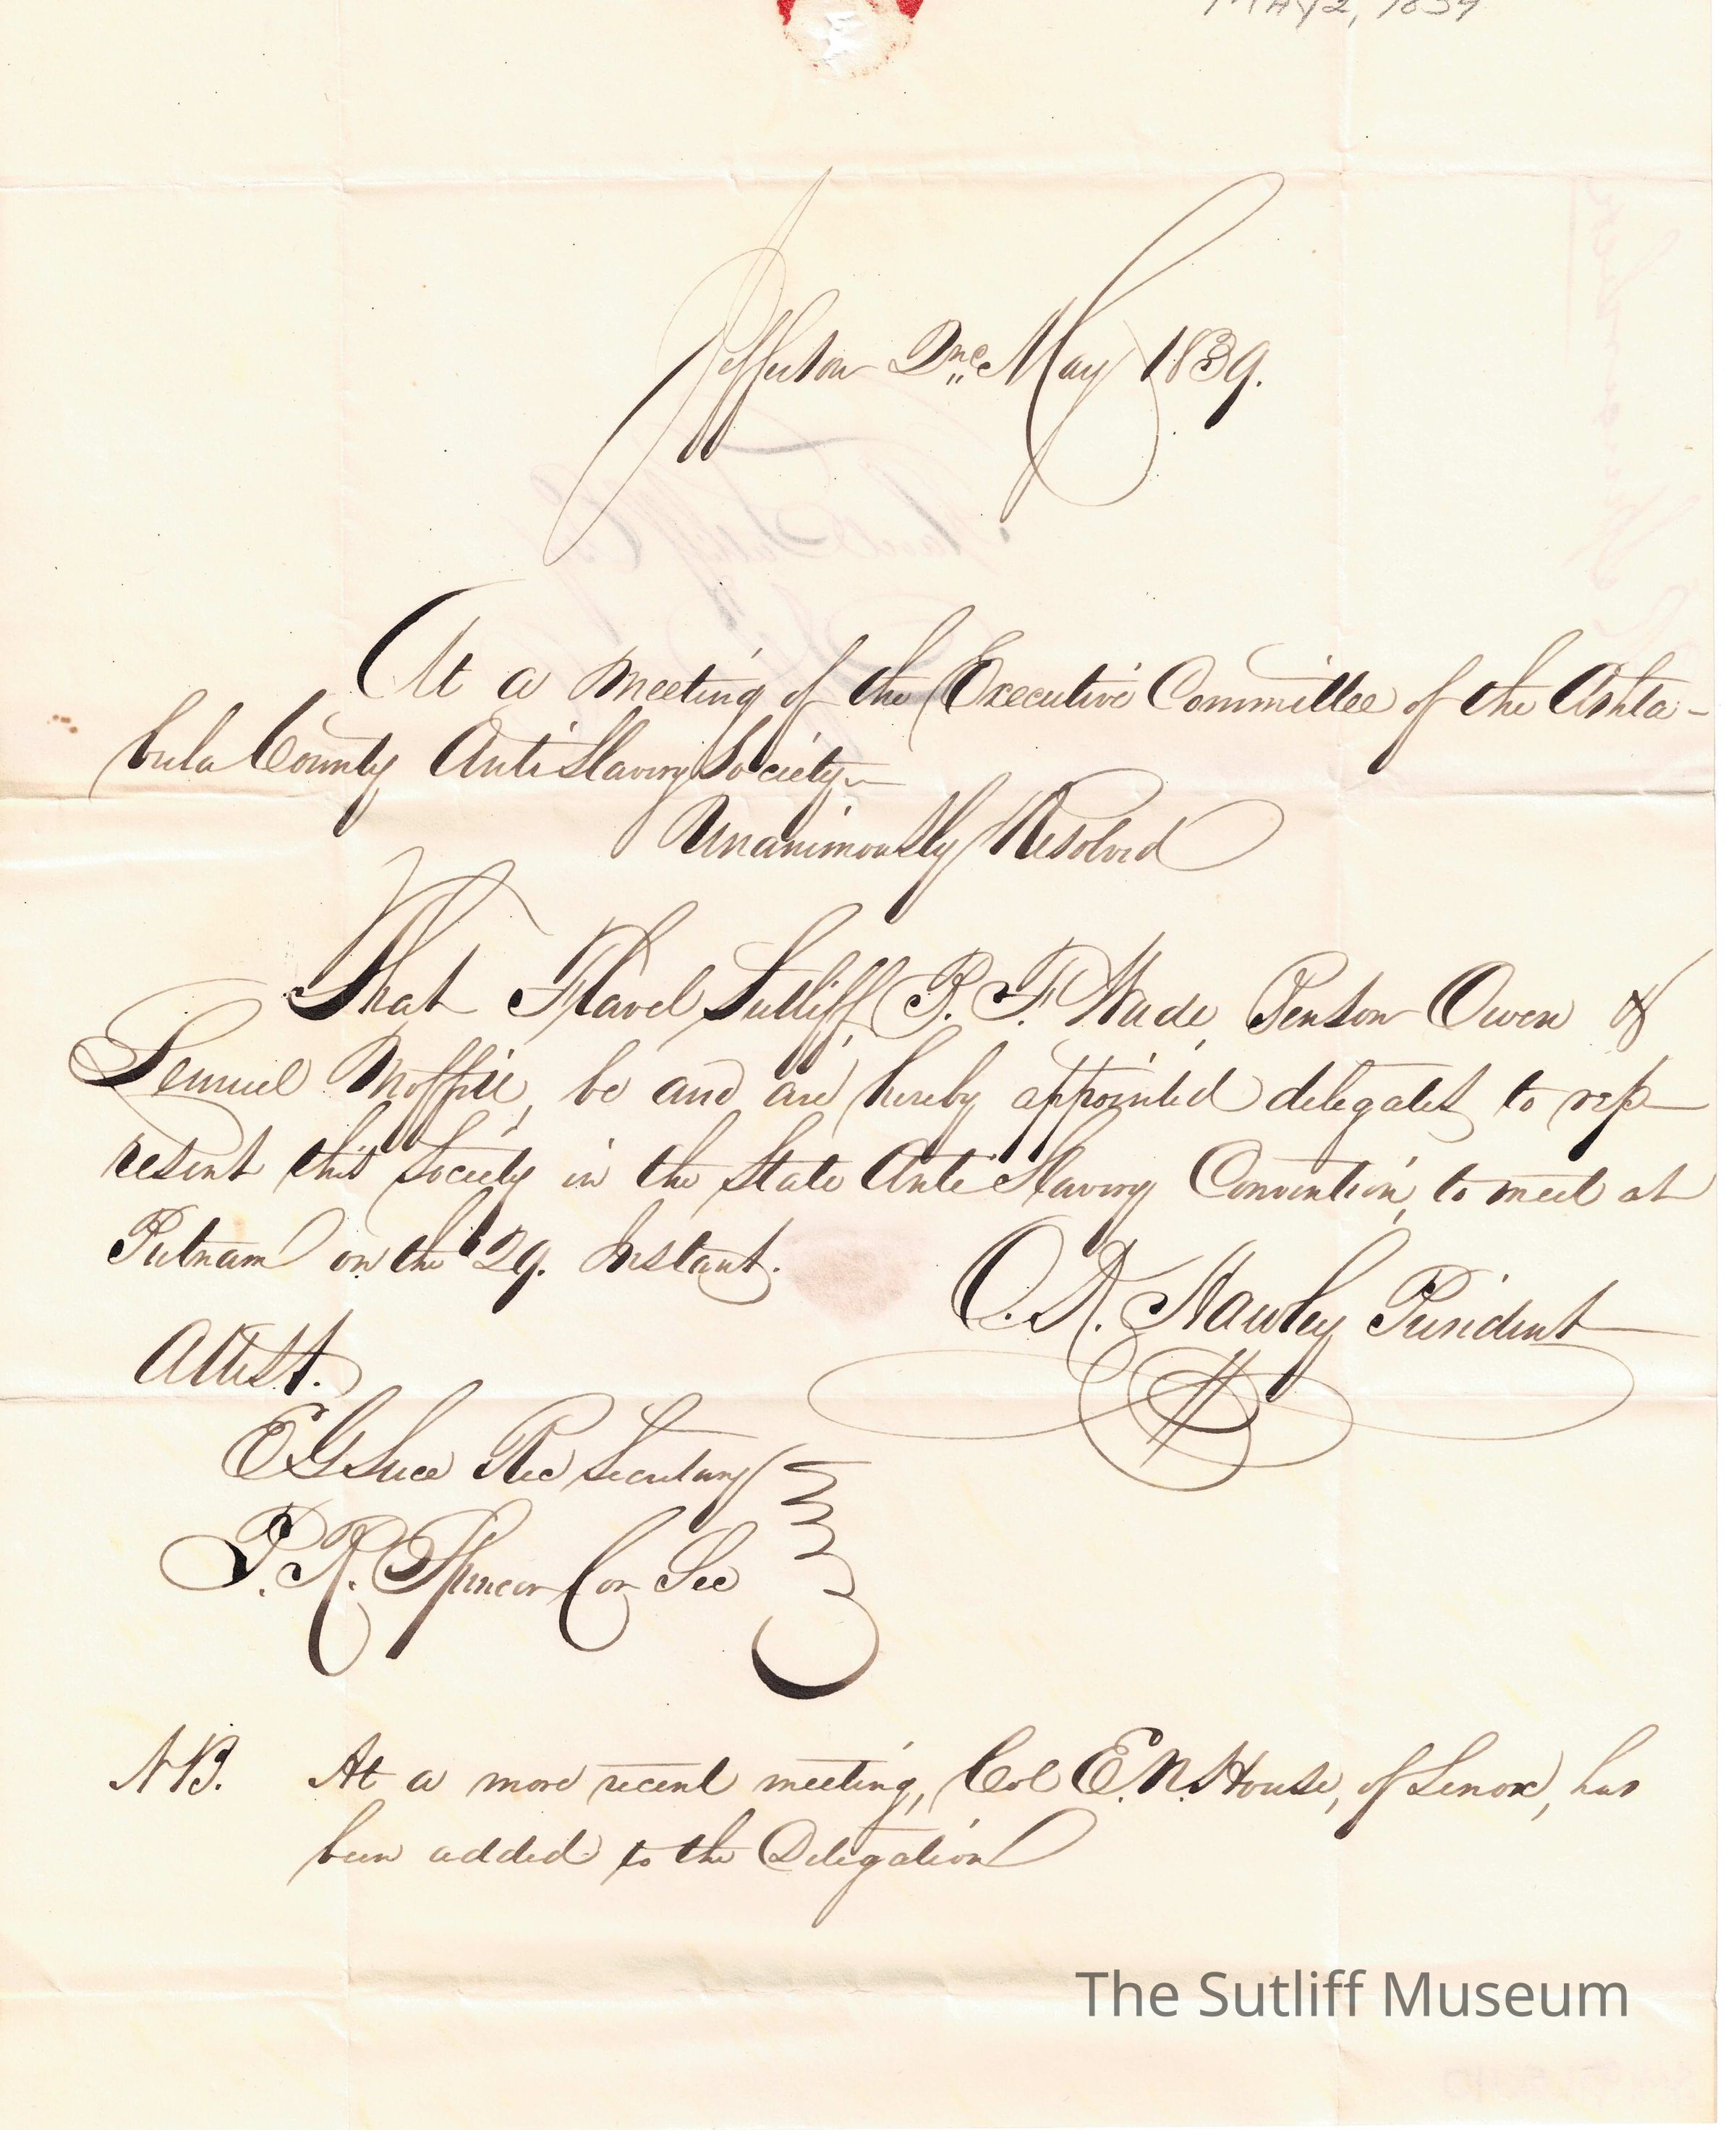 MAY 2, 1839
Jefferson 2nd May 1839.
At a meeting of the Executive Committee of the Ashta-
bula County Anti Slavery Society
Unanimously Resolved
That Flavel Sutliff, B. F. Wade, Benson Owen &
Lemuel Moffit, be and are hereby appointed delegates to rep
resent this Society in the State Anti Slavery Convention, to meet at
Putnam on the 29. Instant.
O. K. Hawley President
Attest.
E G Luce Rec Secretary
P. R. Spencer Cor Sec
NB. At a more recent meeting, Col E. N. House, of Lenox, has
been added to the Delegation
The Sutliff Museum